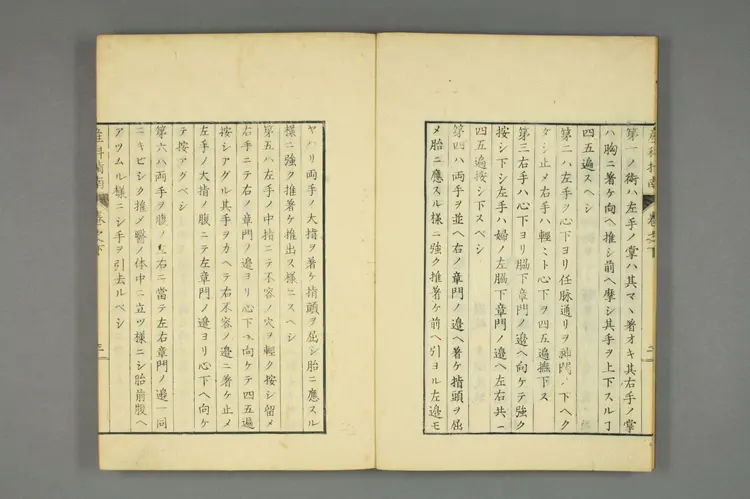 産科指南 卷之下 二
第一ノ術ハ左手ノ掌ハ其マヽ著オキ其右手ノ掌
ハ胸ニ著ケ向ヘ推シ前ヘ摩シ其手ヲ上下スルヿ
四五遍スベシ
第二ハ左手ノ心下ヨリ任脉通リヲ神闕ノ下ヘク
ダシ止メ右手ハ輕ミト心下ヲ四五遍撫下ス
第三右手ハ心下ヨリ脇下章門ノ邊ヘ向ケテ強ク
按シ下シ左手ハ婦ノ左脇下章門ノ邊ヘ左右共ニ
四五遍按シ下スベシ
第四ハ両手ヲ並ヘ右ノ章門ノ邊ヘ著ケ指頭ヲ屈
メ胎ニ應スル様ニ強ク推著ケ前ヘ引ヨル左邊モ
ヤハリ両手ノ大指ヲ著ケ指頭ヲ屈シ胎ニ應スル
様ニ強ク推著ケ推出ス様ニスヘシ
第五ハ左手ノ中指ニテ不容ノ穴ヲ輕ク按シ留メ
右手ニテ右ノ章門ノ邊ヨリ心下ヘ向ケテ四五遍
按シアグル其手ヲカヘテ右不容ノ邊ニ著ケ止メ
左手ノ大指ノ腹ニテ左章門ノ邊ヨリ心下ヘ向ケ
テ按アグベシ
第六ハ両手ヲ腹ノ左右ニ當テ左右章門ノ邊一同
ニキビシク推メ醫ノ体中ニ立ツ様ニシ胎前腹ヘ
アツムル様ニシ手ヲ引去ルベシ
産科指南 卷之下 三